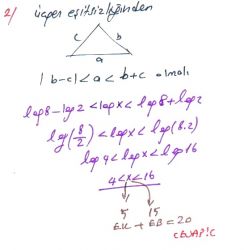 2/ üçgen eşitsizliğinden
c b
a
|b-c| < a < b+c olmalı
log8-log2 < logx < log8+log2
log(8/2) < logx < log(8.2)
log4 < logx < log16
4 < x < 16
5 15
EK + EB = 20
CEVAP: C